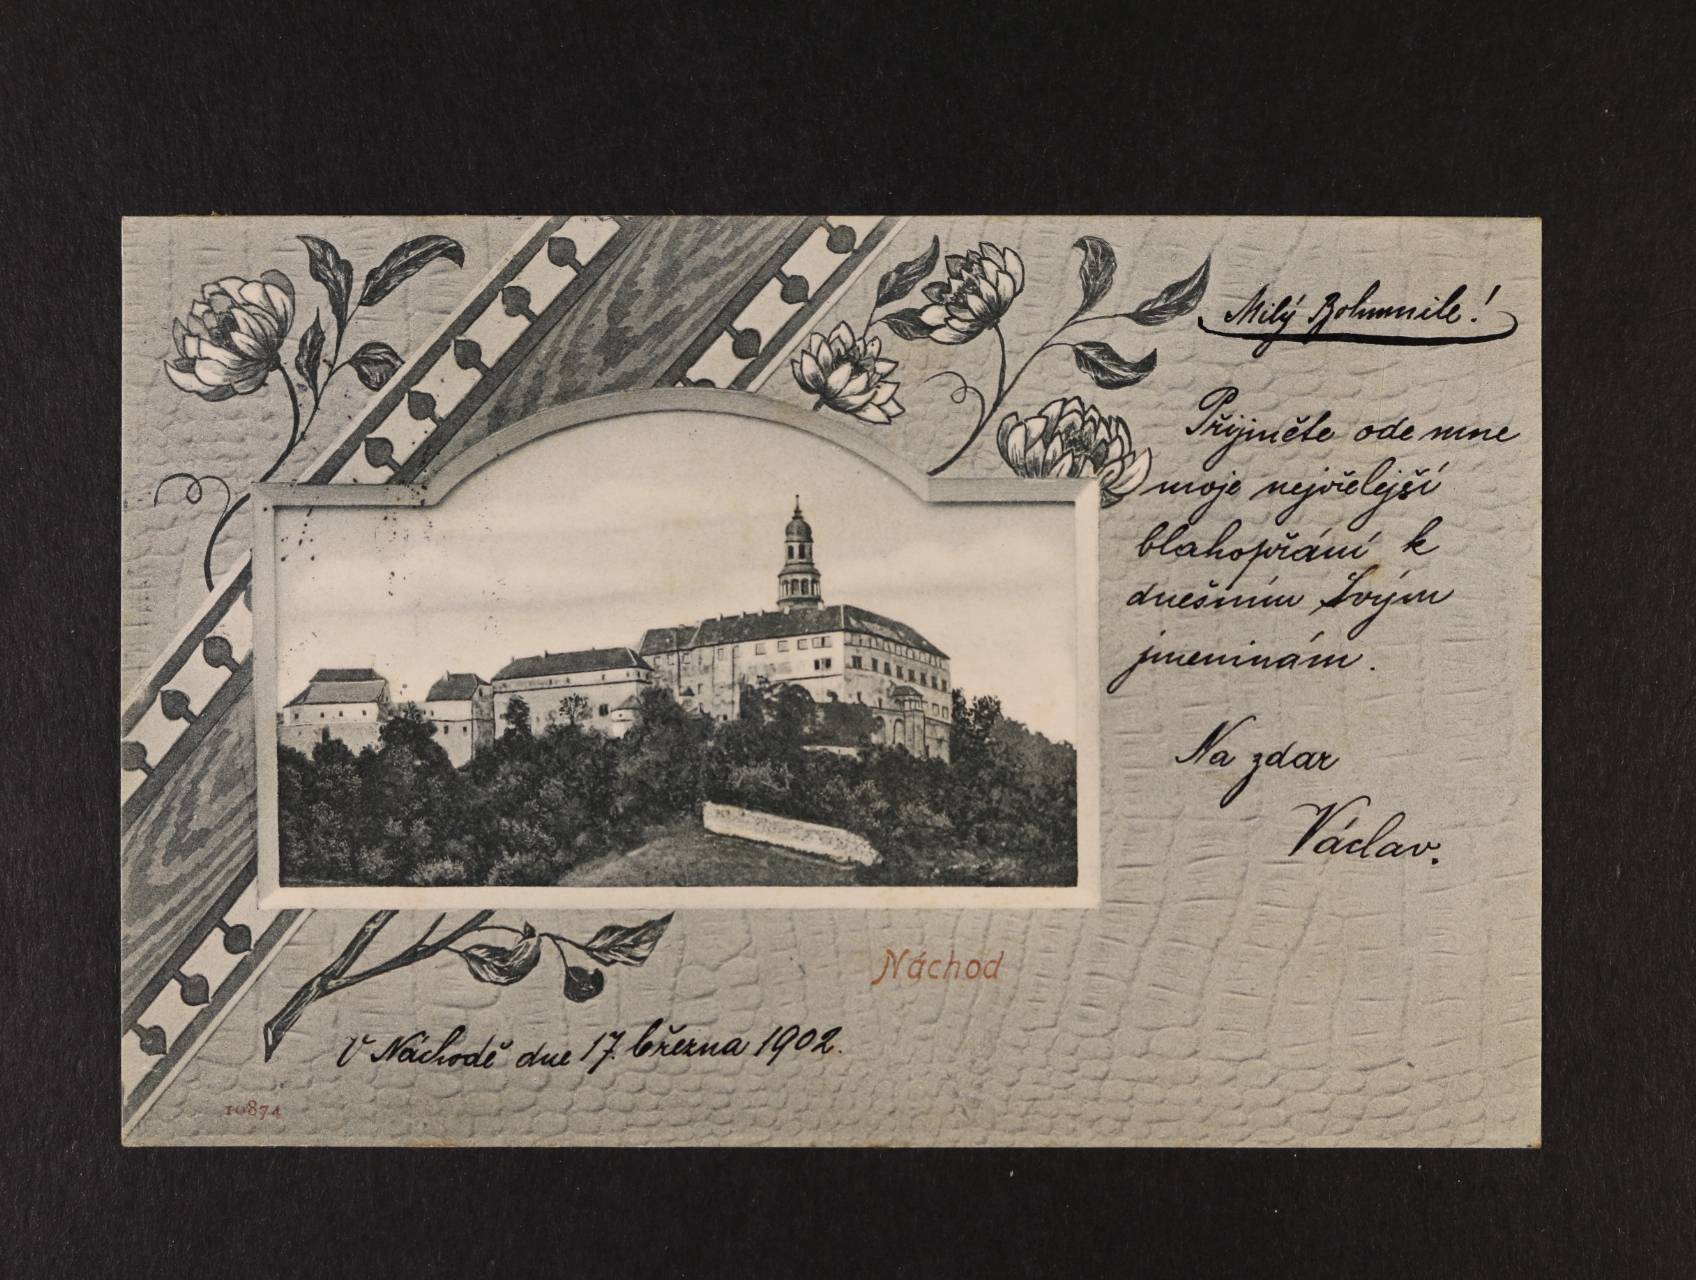 Milý Bohumile!
Přijměte ode mne
moje nejvřelejší
blahopřání k
dnešním Svým
jmeninám.
Na zdar
Václav.
Náchod
V Náchodě dne 17. března 1902.
10874